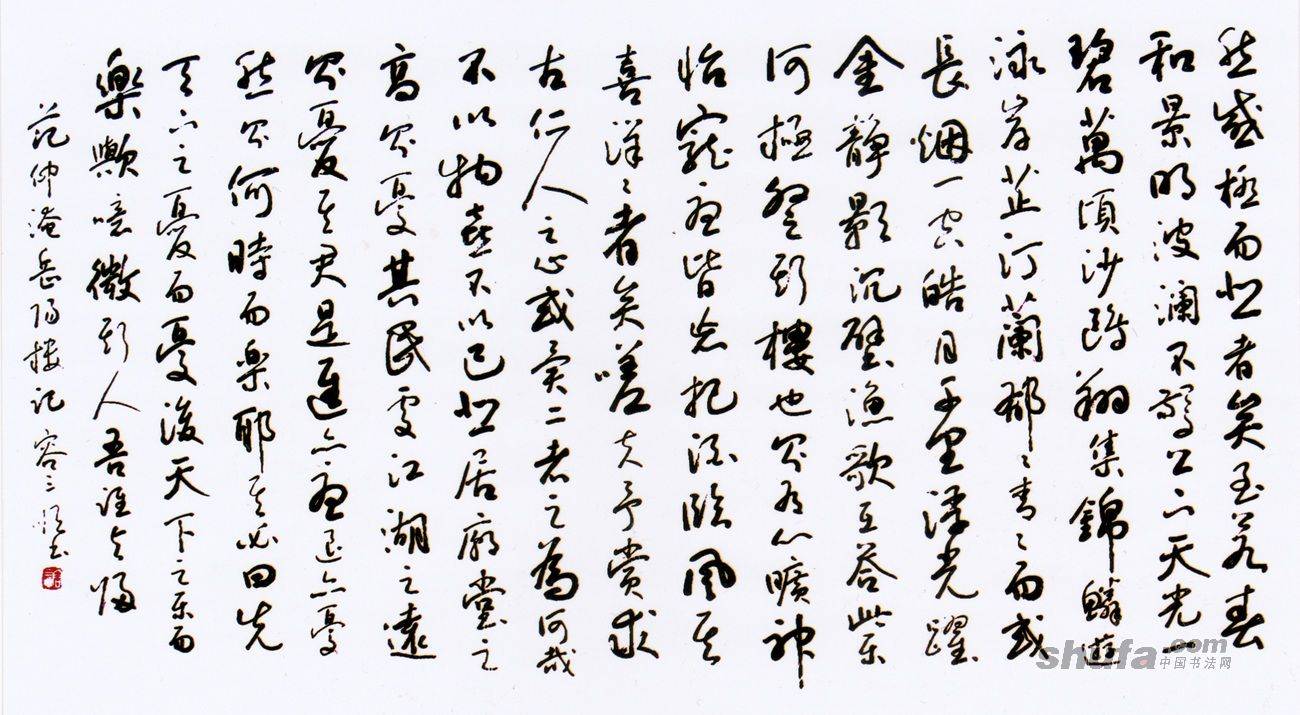 然感極而悲者矣至若春
和景明波瀾不驚上下天光一
碧萬頃沙鷗翔集錦鱗遊
泳岸芷汀蘭郁々青々而或
長烟一空皓月千里浮光躍
金靜影沉璧漁歌互答此樂
何極登斯樓也則有心曠神
怡寵辱皆忘把酒臨風其
喜洋々者矣嗟夫予嘗求
古仁人之心或異二者之為何哉
不以物喜不以己悲居廟堂之
高則憂其民處江湖之遠
則憂其君是進亦憂退亦憂
然則何時而樂耶其必曰先
天下之憂而憂後天下之樂而
樂歟噫微斯人吾誰與歸
范仲淹岳陽樓記 容三書
shufa.com
中国书法网